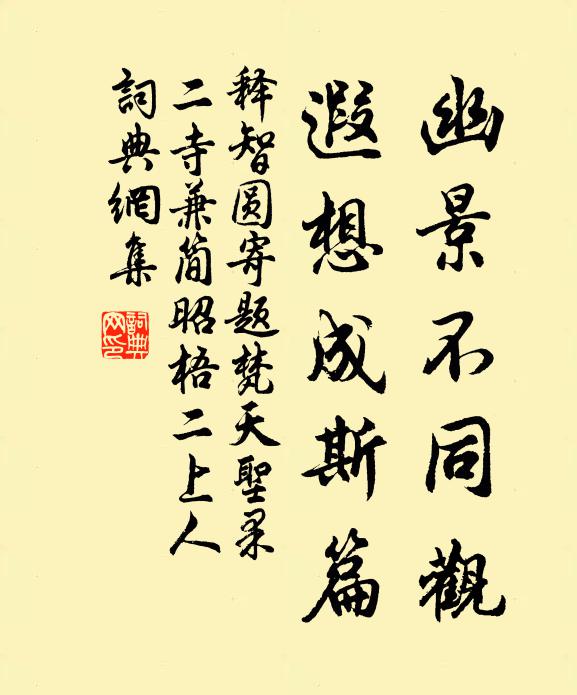 幽景不同觀
遐想成斯篇
释智圆寄題梵天聖果
二寺兼简昭梧二上人
詞典網集
詞典网印